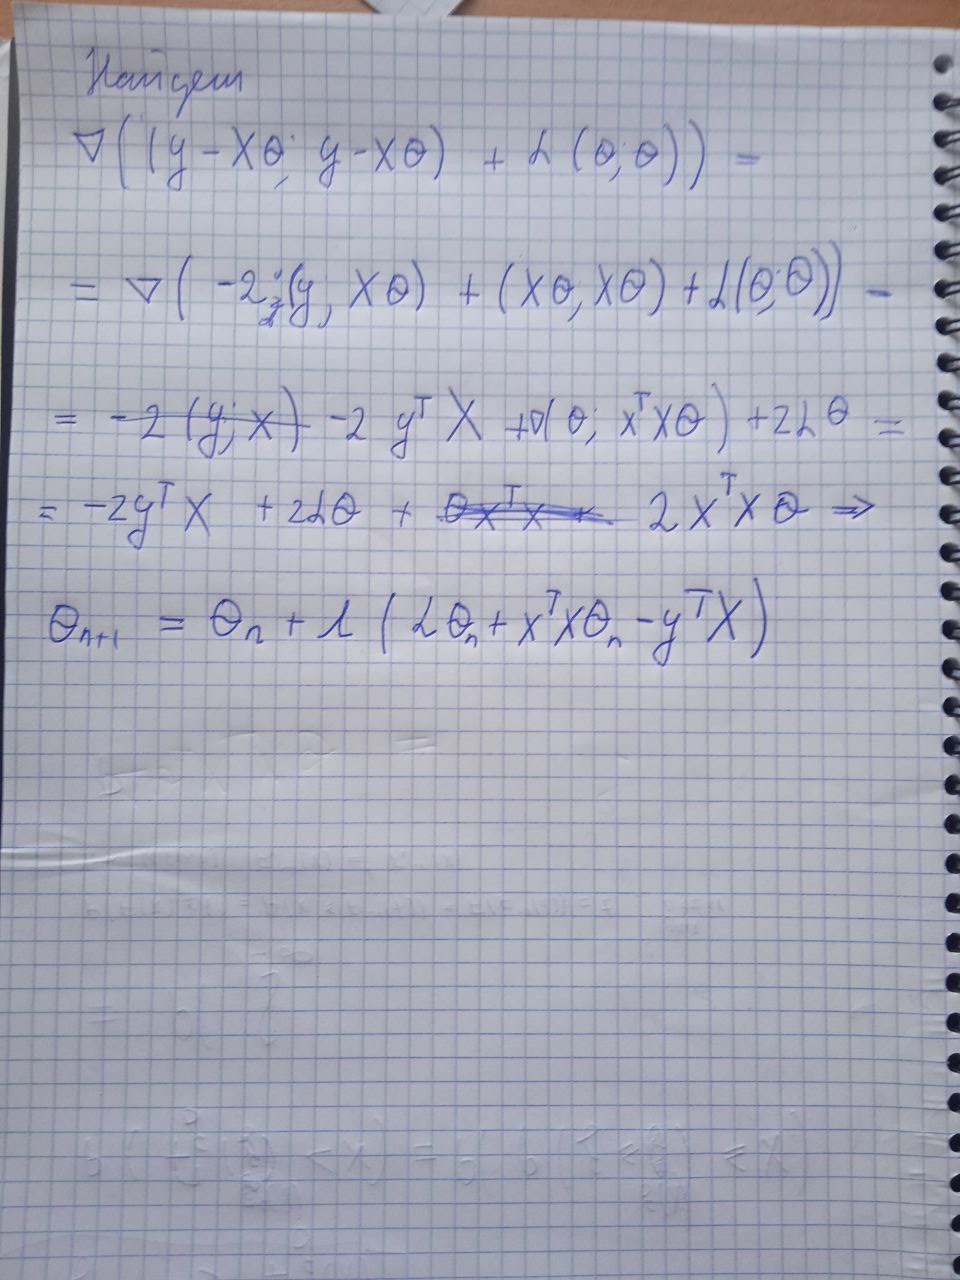 Найдем
∇((y - Xθ; y - Xθ) + λ(θ; θ)) =
= ∇(-2(y, Xθ) + (Xθ, Xθ) + λ(θ; θ)) -
= -2(y; X) -2 yᵀ X + ∇(θ; XᵀXθ) + 2λθ =
= -2yᵀX + 2λθ + θXᵀX + 2XᵀXθ ⇒
θₙ₊₁ = θₙ + λ(λθₙ + XᵀXθₙ - yᵀX)